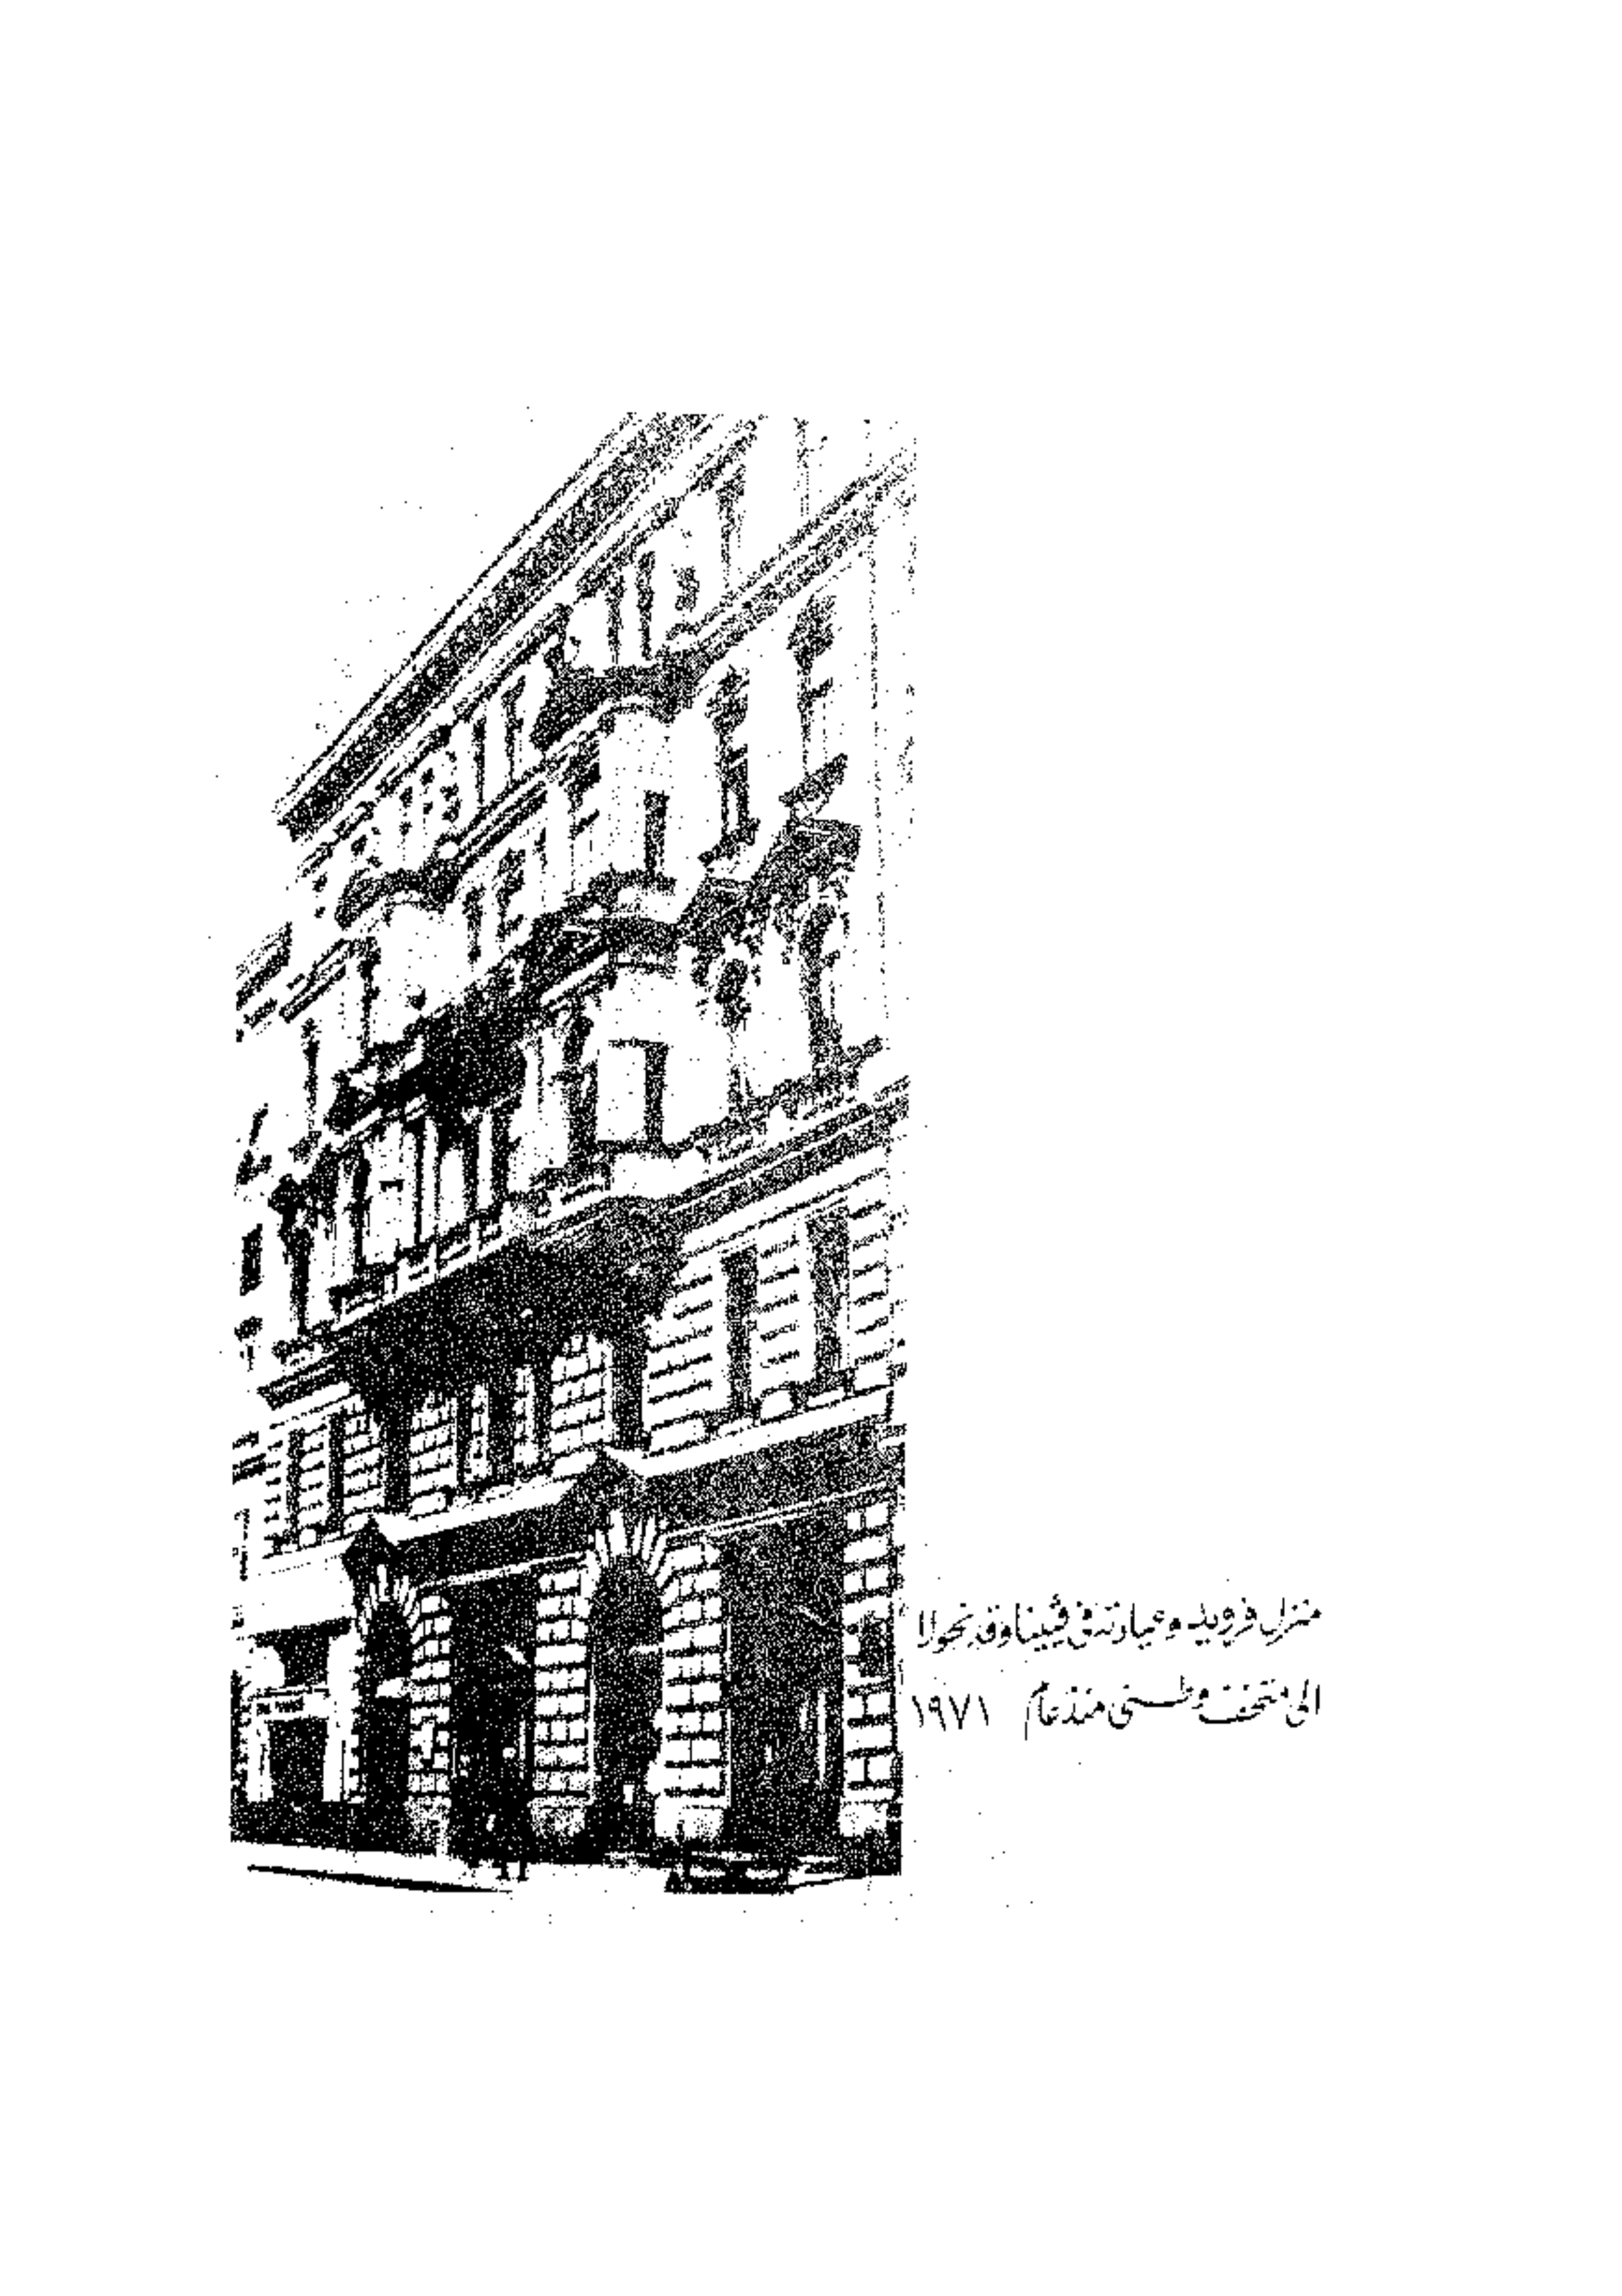 منزل فرويد وعيادته في ڤيينا وقد تحولا
الى متحف وطنى منذ عام ١٩٧١